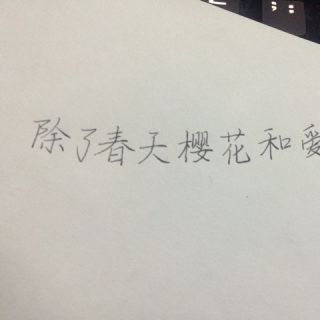 除了春天樱花和爱